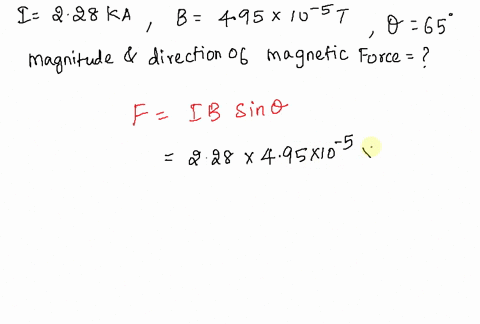 I = 2.28 KA , B = 4.95 × 10⁻⁵ T , θ = 65°
magnitude & direction of magnetic Force = ?
F = IB sinθ
= 2.28 × 4.95 × 10⁻⁵